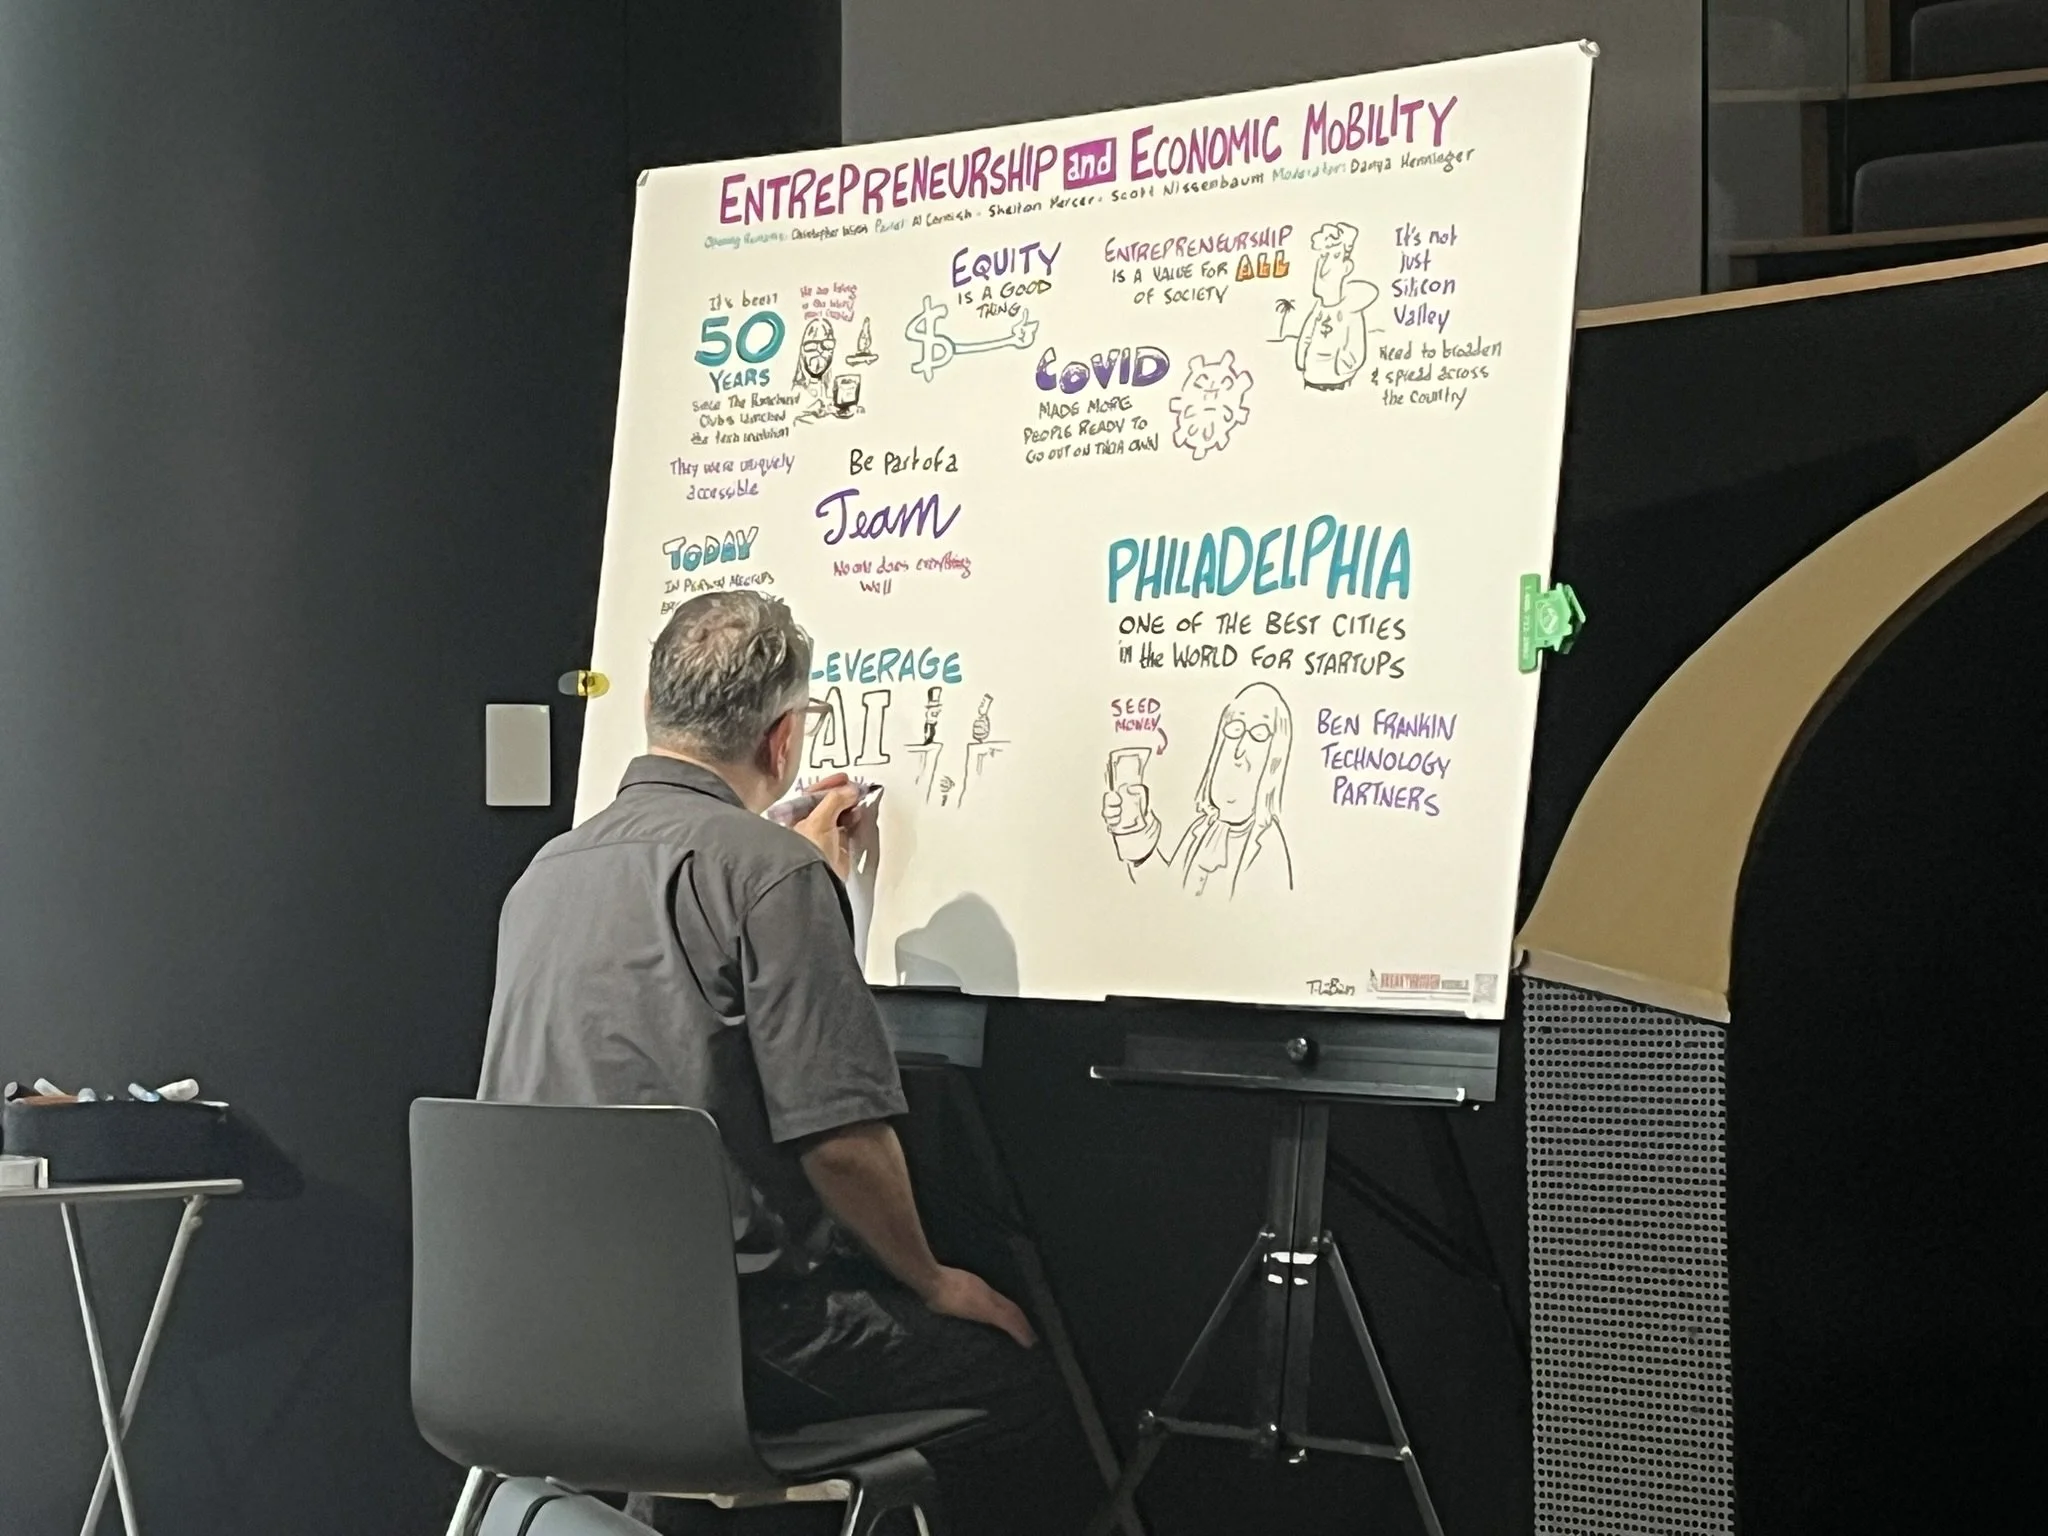 ENTREPRENEURSHIP and ECONOMIC MOBILITY
Opening Remarks: Christopher Panel: Al - Shelton Mercer - Scott Nissenbaum Moderator: Danya Henninger
It's been
50
YEARS
Since The Homebrew
Clubs launched
the tech
They were uniquely
accessible
EQUITY
IS A GOOD
THING
$
ENTREPRENEURSHIP
IS A VALUE FOR ALL
OF SOCIETY
$
It's not
just
Silicon
Valley
Need to broaden
& spread across
the Country
COVID
MADE MORE
PEOPLE READY TO
GO OUT ON THEIR OWN
Be part of a
Team
No one does everything
well
TODAY
IN PERSON MEETUPS
LEVERAGE
AI
PHILADELPHIA
ONE OF THE BEST CITIES
in the WORLD FOR STARTUPS
SEED
MONEY
BEN FRANKIN
TECHNOLOGY
PARTNERS
BREAKTHROUGH